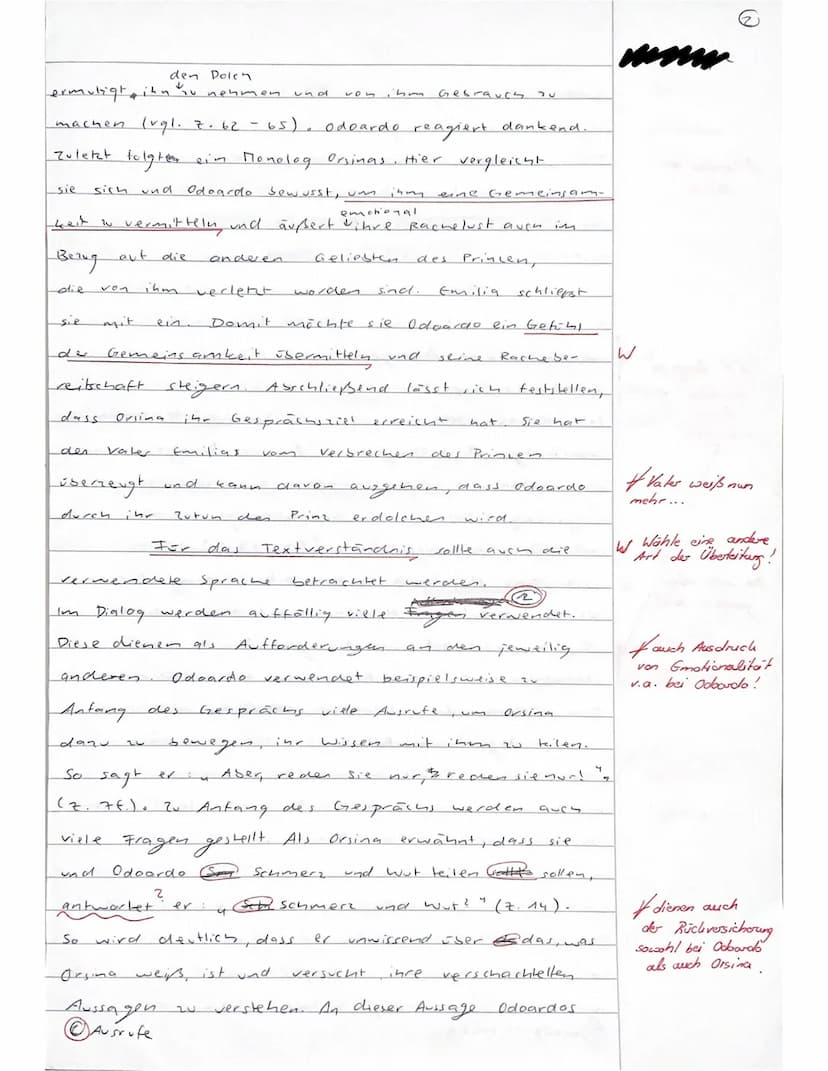 ②
den Dolch
ermutigt, ihn zu nehmen und von ihm Gebrauch zu
machen (vgl. Z. 62 - 65). Odoardo reagiert dankend.
Zuletzt folgt ein Monolog Orsinas. Hier vergleicht
sie sich und Odoardo bewusst, um ihm eine Gemeinsam-
emotional
keit zu vermitteln und äußert ihre Rachelust auch im
Bezug auf die anderen Geliebten des Prinzen,
die von ihm verletzt worden sind. Emilia schliepst
sie mit ein. Damit möchte sie Odoardo ein Gefühl
der Gemeinsamkeit übermitteln und seine Rachebe-
W
reitschaft steigern. Abschließend lässt sich feststellen,
dass Orsina ihr Gesprächsziel erreicht hat. Sie hat
den Vater Emilias vom Verbrechen des Prinzen
überzeugt und kann davon ausgehen, dass Odoardo
Vater weiß nun
mehr...
durch ihr Zutun den Prinz erdolchen wird.
Für das Textverständnis sollte auch die
W Wähle eine andere
Art der Überleitung!
verwendete Sprache betrachtet werden.
Im Dialog werden auffällig viele ② verwendet.
Diese dienen als Aufforderungen an den jeweilig
auch Ausdruck
von Emotionalität
v.a. bei Odoardo!
anderen. Odoardo verwendet beispielsweise zu
Anfang des Gesprächs viele Ausrufe, um Orsina
dazu zu bewegen, ihr Wissen mit ihm zu teilen.
So sagt er: „Aber, reden Sie nur, reden Sie nur!",
(Z. 7f.). Zu Anfang des Gesprächs werden auch
viele Fragen gestellt. Als Orsina erwähnt, dass sie
und Odoardo Schmerz und Wut teilen sollen,
?
antwortet er: „Schmerz und Wut?" (Z. 14).
dienen auch
der Rückversicherung
sowohl bei Odoardo
als auch Orsina.
So wird deutlich, dass er unwissend über das, was
Orsina weiß, ist und versucht, ihre verschachtelten
Aussagen zu verstehen. An dieser Aussage Odoardos
② Ausrufe